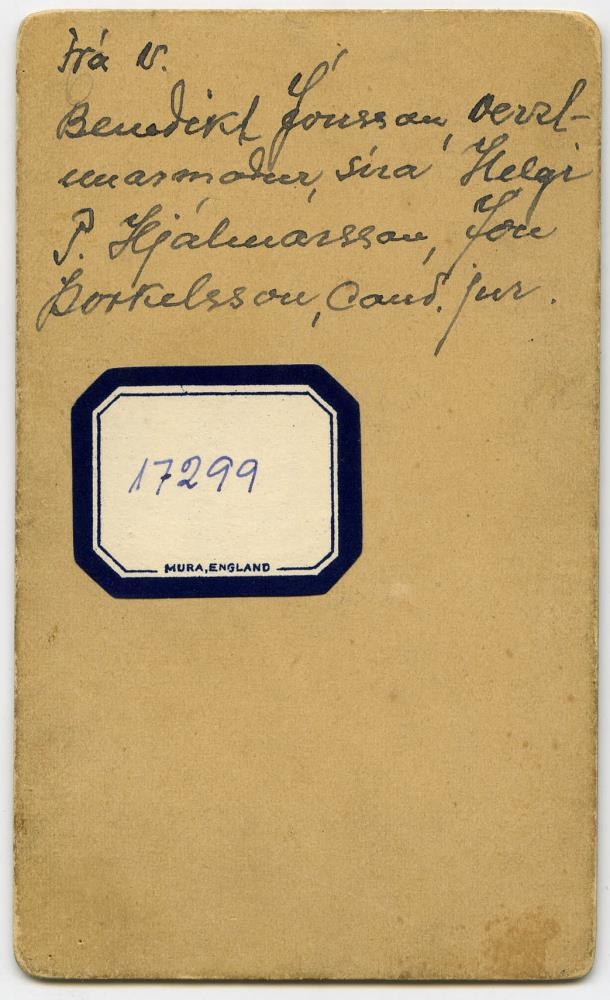 Frá v.
Benedikt Jónsson, verzl-
unarmaður, síra Helgi
P. Hjálmarsson, Jón
Þorkelsson, Cand. jur.
17299
MURA, ENGLAND